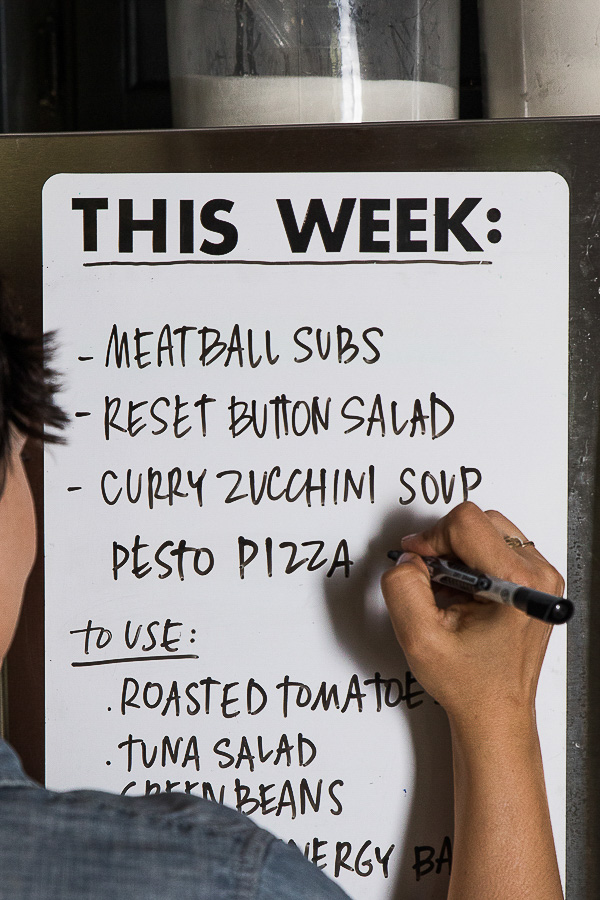 THIS WEEK:
- MEATBALL SUBS
- RESET BUTTON SALAD
- CURRY ZUCCHINI SOUP
PESTO PIZZA
TO USE:
. ROASTED TOMATOES
. TUNA SALAD
GREEN BEANS